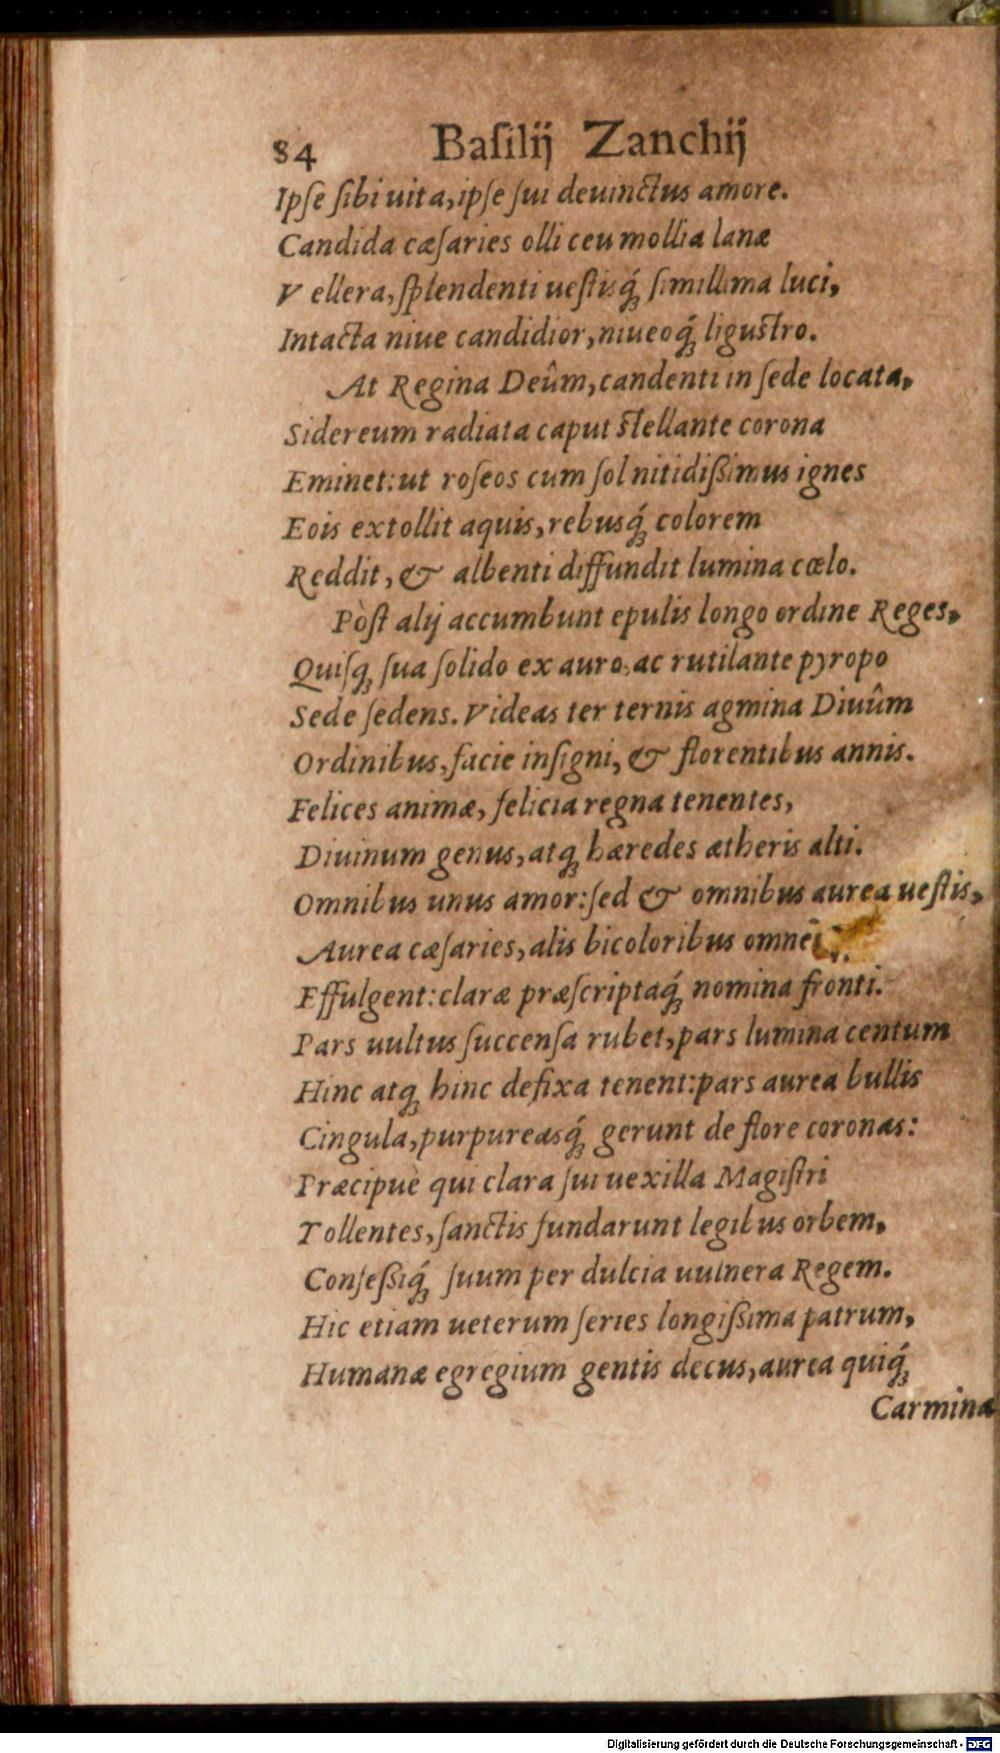 84 Baſilij Zanchij
Ipſe ſibi uita, ipſe ſui deuinctus amore.
Candida cæſaries olli ceu mollia lanæ
Vellera, ſplendenti ueſtisq́; ſimillima luci,
Intacta niue candidior, niueoq́; liguſtro.
At Regina Deûm, candenti in ſede locata,
Sidereum radiata caput ſtellante corona
Eminet: ut roſeos cum ſol nitidißimus ignes
Eois extollit aquis, rebusq́; colorem
Reddit, & albenti diffundit lumina cœlo.
Pòſt alij accumbunt epulis longo ordine Reges,
Quiſq; ſua ſolido ex auro, ac rutilante pyropo
Sede ſedens. Videas ter ternis agmina Diuûm
Ordinibus, facie inſigni, & florentibus annis.
Felices animæ, felicia regna tenentes,
Diuinum genus, atq; hæredes ætheris alti.
Omnibus unus amor: ſed & omnibus aurea ueſtis,
Aurea cæſaries, alis bicoloribus omnes
Effulgent: claræ præſcriptaq́; nomina fronti.
Pars uultus ſuccenſa rubet, pars lumina centum
Hinc atq; hinc defixa tenent: pars aurea bullis
Cingula, purpureasq́; gerunt de flore coronas:
Præcipuè qui clara ſui uexilla Magiſtri
Tollentes, ſanctis fundarunt legibus orbem,
Confeßiq́; ſuum per dulcia uulnera Regem.
Hic etiam ueterum ſeries longißima patrum,
Humanæ egregium gentis decus, aurea quiq́;
Carmina
Digitalisierung gefördert durch die Deutsche Forschungsgemeinschaft - DFG